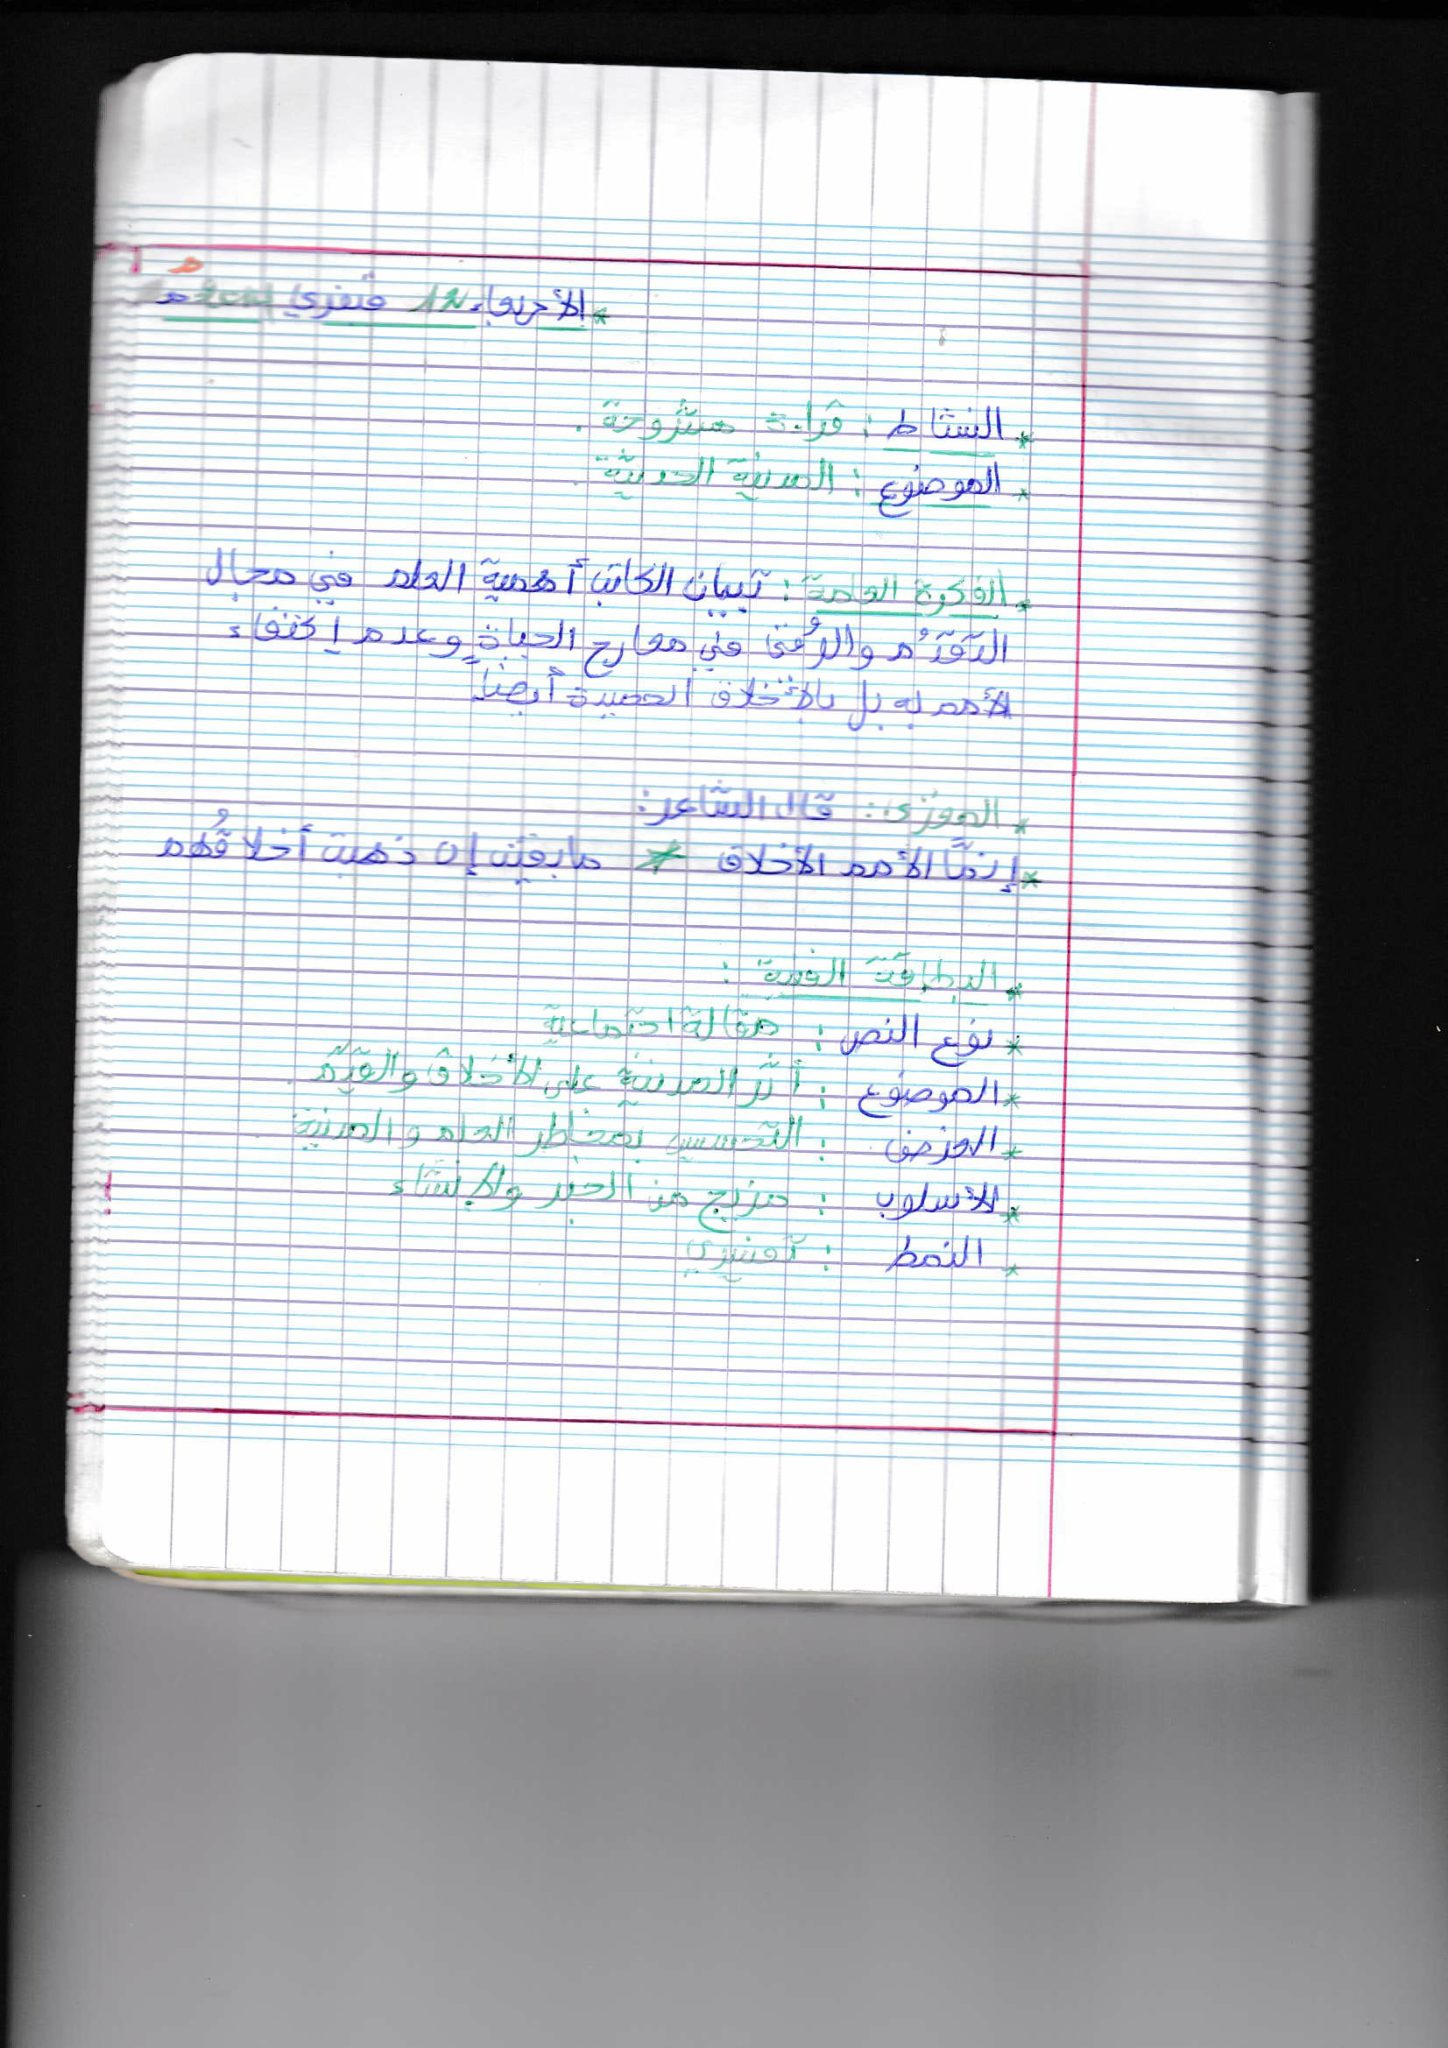 * الأربعاء 12 فيفري م
* النشاط : قراءة مشروحة .
* الموضوع : المدنية الحديثة .
* الفكرة العامة : تبيان الكاتب أهمية العلم في مجال
التّقدّم والرُقي في معارج الحياة وعدم اكتفاء
الأمم به بل بالأخلاق الحميدة أيضاً
* المغزى : قال الشاعر :
* إنمّا الأمم الأخلاق * ما بقيت إن ذهبت أخلاقُهم
* البطاقة الفنية :
* نوع النص : مقالة اجتماعية
* الموضوع : أثر المدنية على الأخلاق والقيم .
* الغرض : التحسيس بمخاطر العلم والمدنية
* الأسلوب : مزيج من الخبر والإنشاء
* النمط : تفسيري